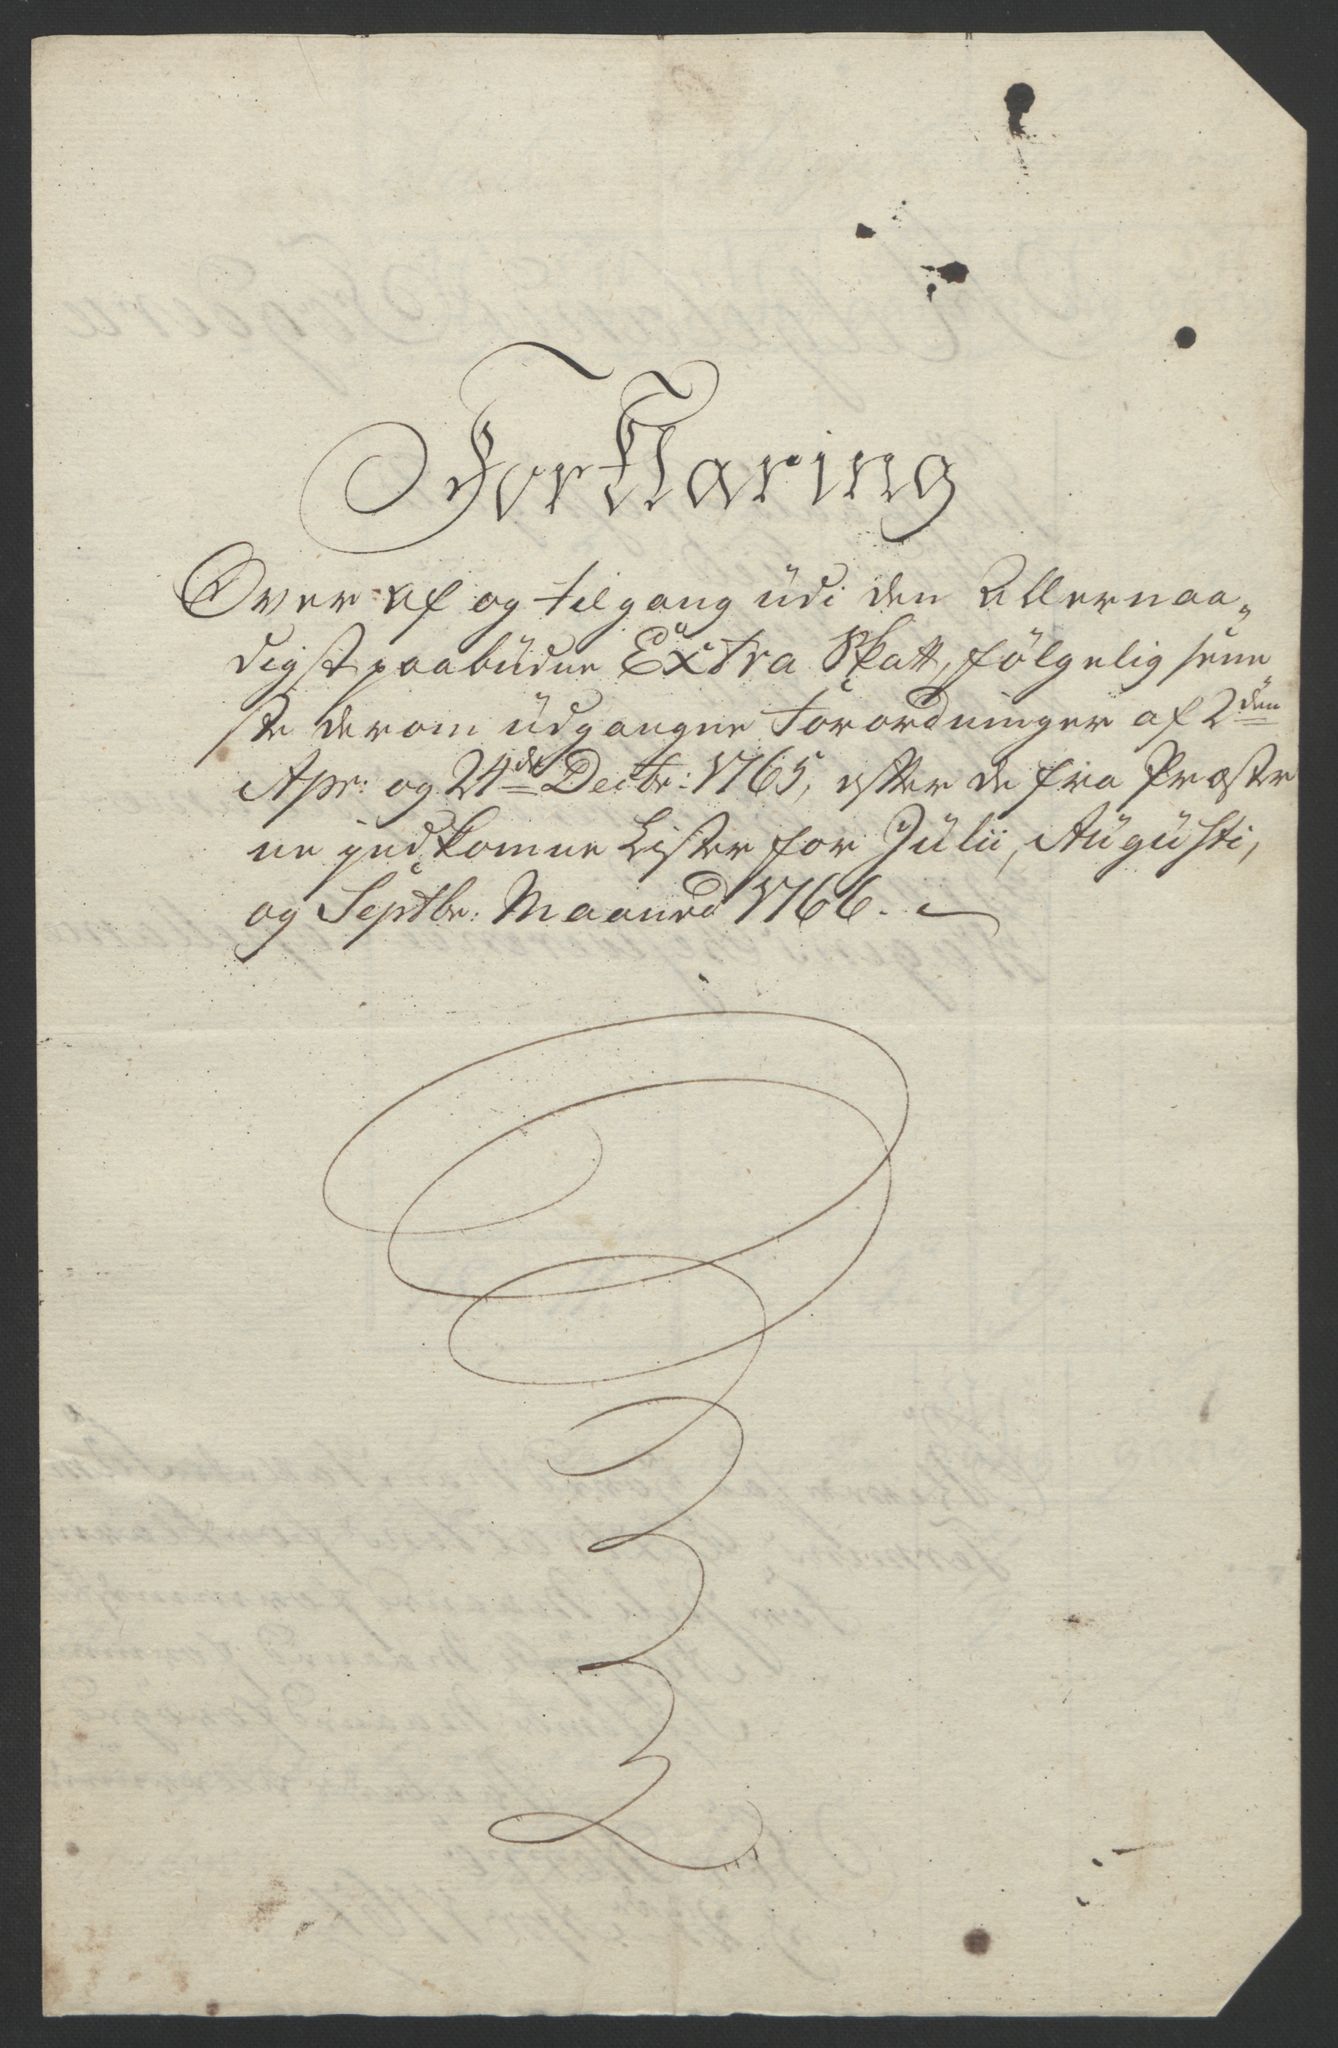 Forklaring
Over af og tilgang üdi den Allernaa„
digst paabüdne Extra Skatt, følgelig sene
ste derom üdgangne Forordninger af 2den
Apr: og 24de Decbr: 1765, efter de fra Præster
ne indkomne Lister for Julii, Augusti,
og Septbr: Maaned 1766.